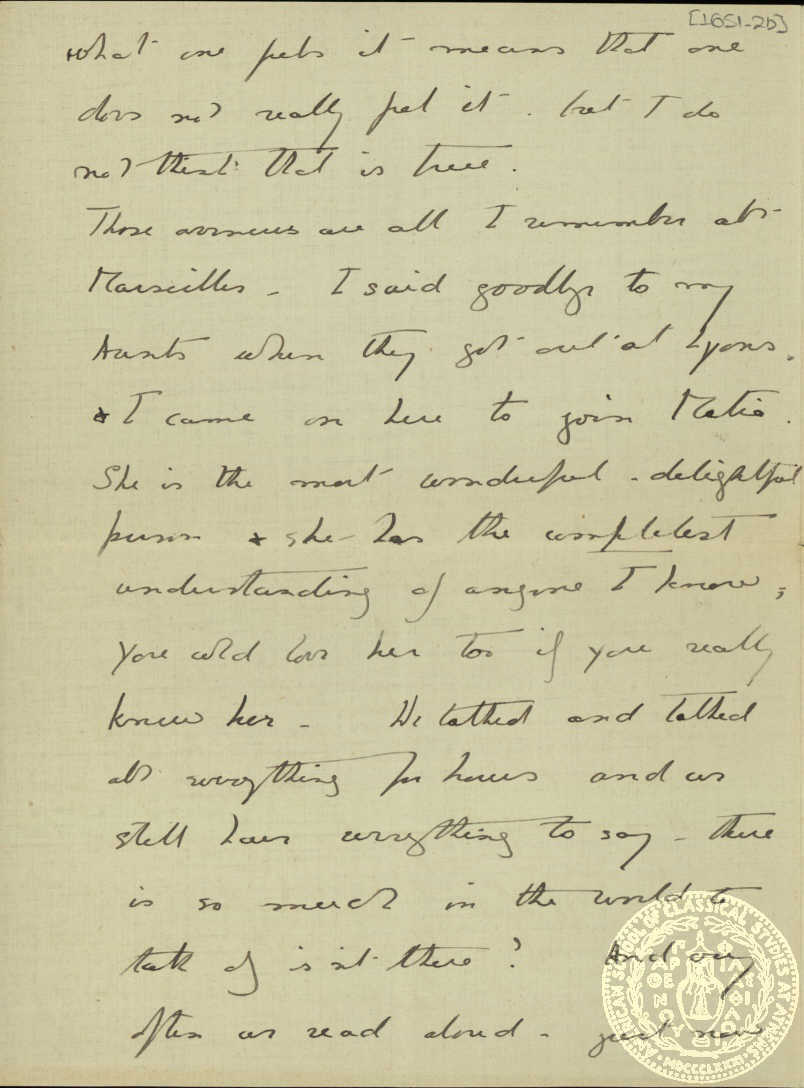 [1651-2b]
what one feels it means that one
does not really feel it. but I do
not think that is true.
Those avenues are all I remember abt
Marseilles - I said goodbye to my
Aunts when they got out at Lyons.
& I came on here to join Matie.
She is the most wonderful - delightful
person & she has the completest
understanding of anyone I know;
You wld love her too if you really
knew her - We talked and talked
abt everything for hours and we
still have everything to say - there
is so much in the world to
talk of isnt there? And very
often we read aloud - just now
AMERICAN SCHOOL OF CLASSICAL STUDIES AT ATHENS
MDCCCLXXXI